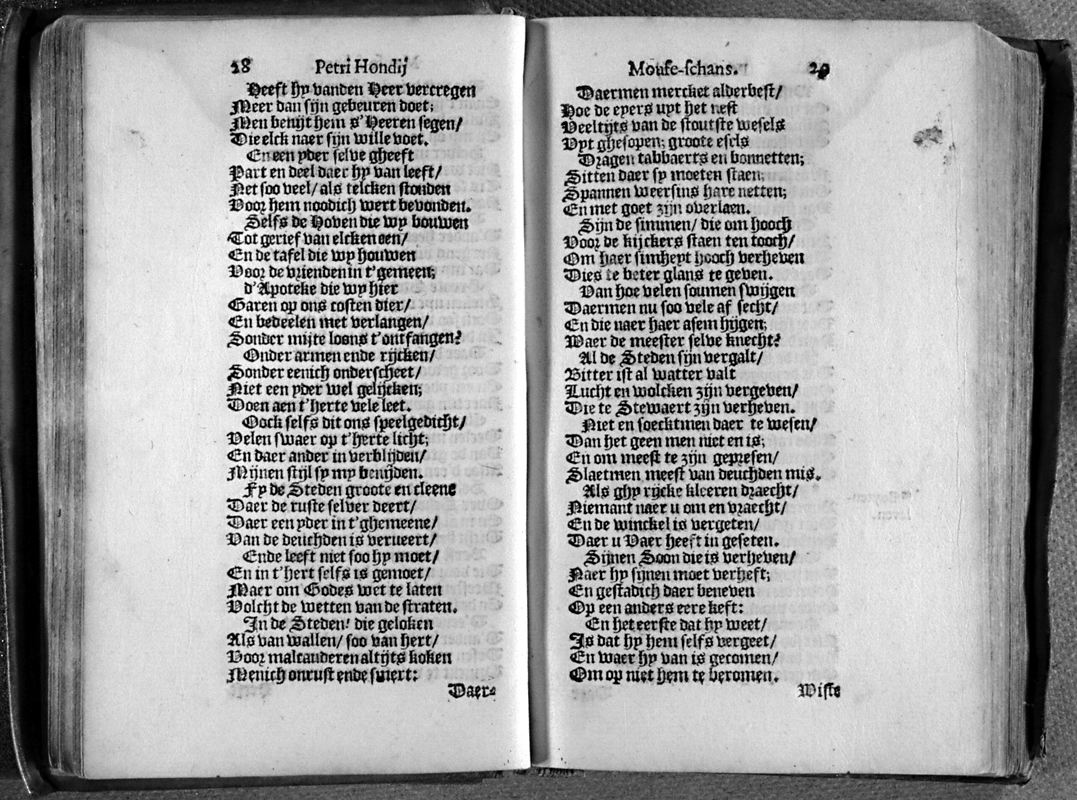 28 Petri Hondij
Heeft hy vanden Heer vercregen
Meer dan sijn gebeuren doet;
Men benijt hem s'Heeren segen/
Die elck naer sijn wille voet.
En een yder selve gheeft
Part en deel daer hy van leeft/
Net soo veel/ als telcken stonden
Voor hem noodich wert bevonden.
Selfs de Hoven die wy bouwen
Tot gerief van elcken een/
En de tafel die wy houwen
Voor de vrienden in t'gemeen;
d'Apoteke die wy hier
Garen op ons costen dier/
En bedeelen met verlangen/
Sonder mijte loons t'ontfangen?
Onder armen ende rijcken/
Sonder eenich onderscheet/
Niet een yder wel gelijcken;
Doen aen t'herte vele leet.
Oock selfs dit ons speelgedicht/
Velen swaer op t'herte licht;
En daer ander in verblijden/
Mijnen stijl sy my benijden.
Fy de Steden groote en cleene
Daer de ruste selver deert/
Daer een yder in t'ghemeene/
Van de deuchden is verueert/
Ende leeft niet soo hy moet/
En in t'hert selfs is gemoet/
Maer om Godes wet te laten
Volcht de wetten van de straten.
In de Steden/ die geloken
Als van wallen/ soo van hert/
Voor malcanderen altijts koken
Menich onrust ende smert:
Daer-
Moufe-schans. 29
Daermen mercket alderbest/
Hoe de eyers uyt het nest
Veeltijts van de stoutste wesels
Uyt ghesopen; groote esels
Dragen tabbaerts en bonnetten;
Sitten daer sy moeten staen;
Spannen weersins hare netten;
En met goet zijn overlaen.
Sijn de simmen/ die om hooch
Voor de kijckers staen ten tooch/
Om haer simheyt hooch verheven
Dies te beter glans te geven.
Van hoe velen soumen swijgen
Daermen nu soo vele af secht/
En die naer haer asem hijgen;
Waer de meester selve knecht?
Al de Steden sijn vergalt/
Bitter ist al watter valt
Lucht en wolcken zijn vergeven/
Die te Stewaert zijn verheven.
Niet en soecktmen daer te wesen/
Dan het geen men niet en is;
En om meest te zijn gepresen/
Slaetmen meest van deuchden mis.
Als ghy rijcke kleeren draecht/
Niemant naer u om en vraecht/
En de winckel is vergeten/
Daer u Vaer heeft in geseten.
Sijnen Soon die is verheven/
Naer hy sijnen moet verheft;
En gestadich daer beneven
Op een anders eere keft:
En het eerste dat hy weet/
Is dat hy hem selfs vergeet/
En waer hy van is gecomen/
Om op niet hem te beromen.
Wiste